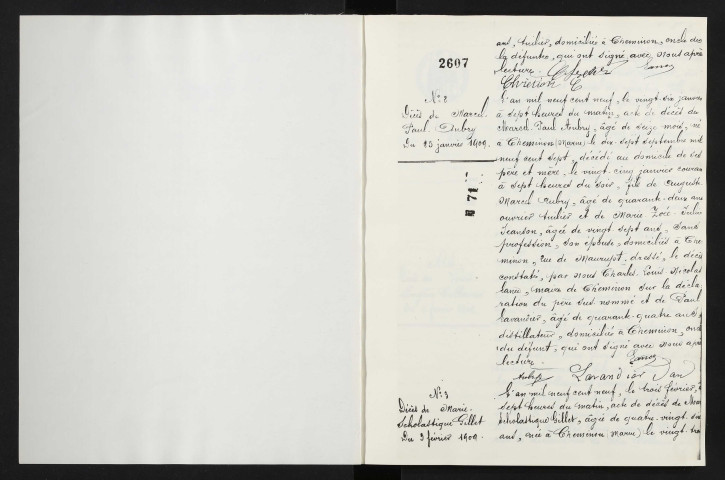 2607
N° 2
Décès de Marcel
Paul Aubry
Du 25 janvier 1909.
N 71
N° 3
Décès de Marie
Scholastique Gillet
Du 3 février 1909.
ans, tuilier, domiciliés à Cheminon, oncle de
la défunte, qui ont signé avec Nous après
lecture.
Chrétien C
L'an mil neuf cent neuf, le vingt-six janvier
à sept heures du matin, acte de décès de
Marcel Paul Aubry, âgé de seize mois, né
à Cheminon (Marne) le dix-sept septembre mil
neuf cent sept, décédé au domicile de ses
père et mère, le vingt-cinq janvier courant
à sept heures du soir, fils de Auguste
Marcel Aubry, âgé de quarante-deux ans
ouvrier tuilier et de Marie Zoé
Jeanson, âgée de vingt sept ans, sans
profession, son épouse, domiciliés à Che
minon, rue de Maurupt, dressé, le décès
constaté, par nous Charles Louis Nicolas
maire de Cheminon sur la décla
ration du père sus nommé et de Paul
Lavandier, âgé de quarante-quatre ans
distillateur, domicilié à Cheminon,
du défunt, qui ont signé avec nous après
lecture.
Aubry Lavandier
L'an mil neuf cent neuf, le trois février, à
sept heures du matin, acte de décès de
Scholastique Gillet, âgée de quatre-vingt
ans, née à Cheminon (Marne) le vingt